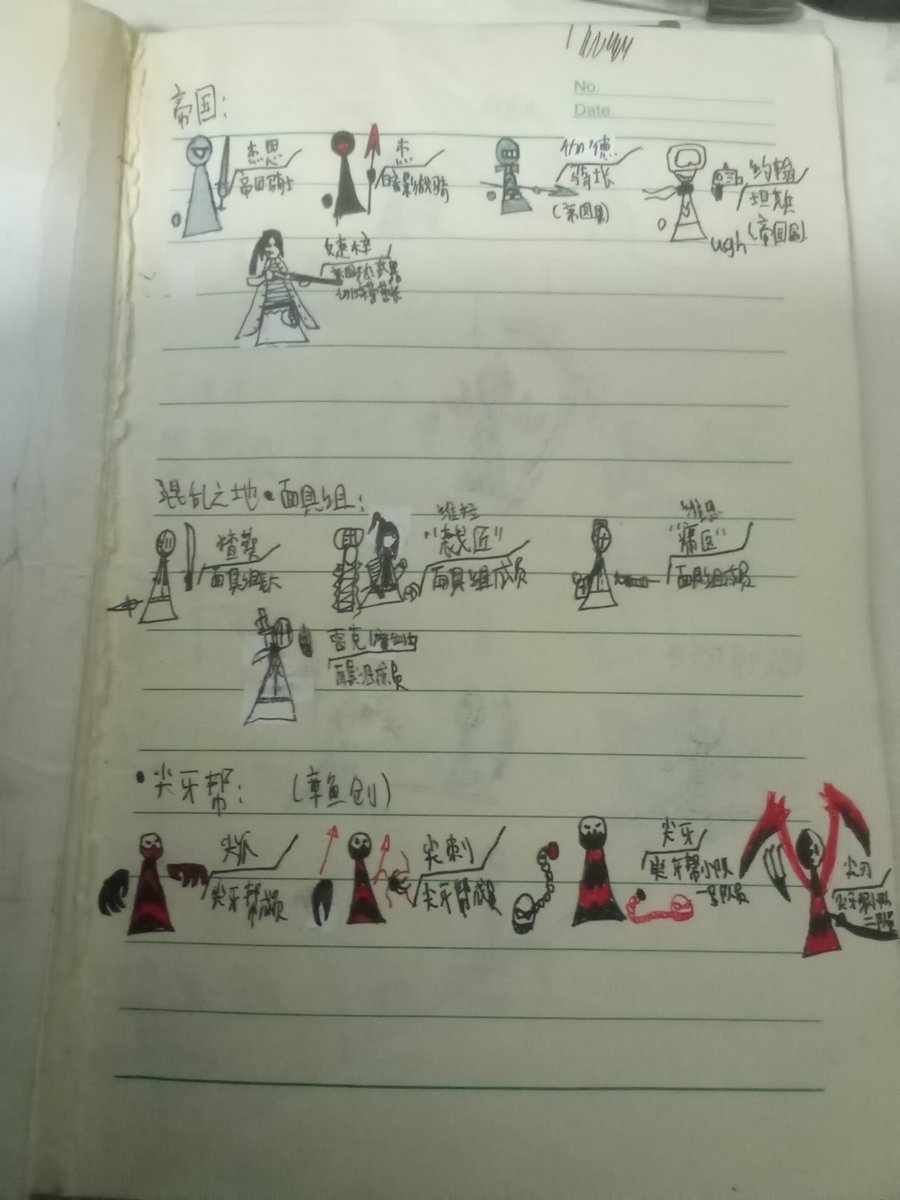 No.
Date.
帝国：
杰思
帝国骑士
杰
暗影战骑
伽德
骑士长
（帝国）
约翰
坦克
（帝国）
ugh
混乱之地·面具组：
面具组长
维拉
“裁匠”
面具组成员
维恩
“痛医”
面具组成员
雷克
面具组成员
·尖牙帮：（章鱼创）
尖爪
尖牙帮成员
尖刺
尖牙帮成员
尖牙
尖牙帮小队
一号队员
尖刃
尖牙帮小队
二队员